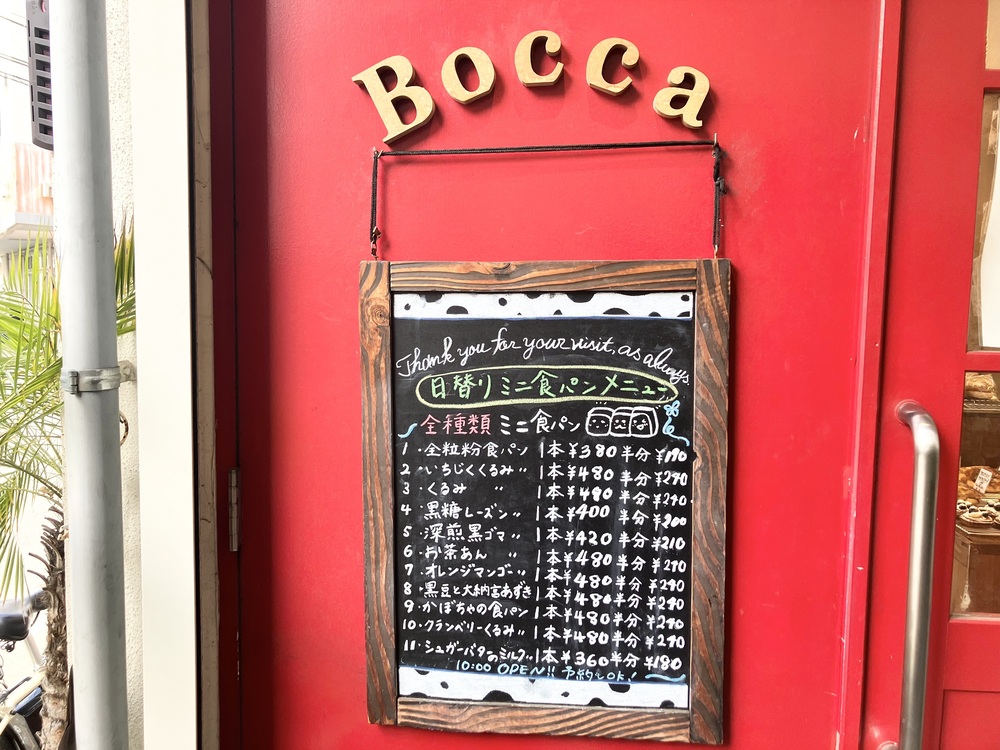 Bocca
Thank you for your visit, as always.
日替りミニ食パンメニュー
全種類 ミニ食パン
1・全粒粉食パン 1本¥380 半分¥190
2・いちじくくるみ〃 1本¥480 半分¥240
3・くるみ 〃 1本¥480 半分¥240
4・黒糖レーズン〃 1本¥400 半分¥200
5・深煎黒ゴマ〃 1本¥420 半分¥210
6・お茶あん 〃 1本¥480 半分¥240
7・オレンジマンゴー〃 1本¥480 半分¥240
8・黒豆と大納言あずき 1本¥480 半分¥240
9・かぼちゃの食パン 1本¥480 半分¥240
10・クランベリーくるみ〃 1本¥480 半分¥240
11・シュガーバターのミルク〃 1本¥360 半分¥180
10:00 OPEN!! 予約もOK!